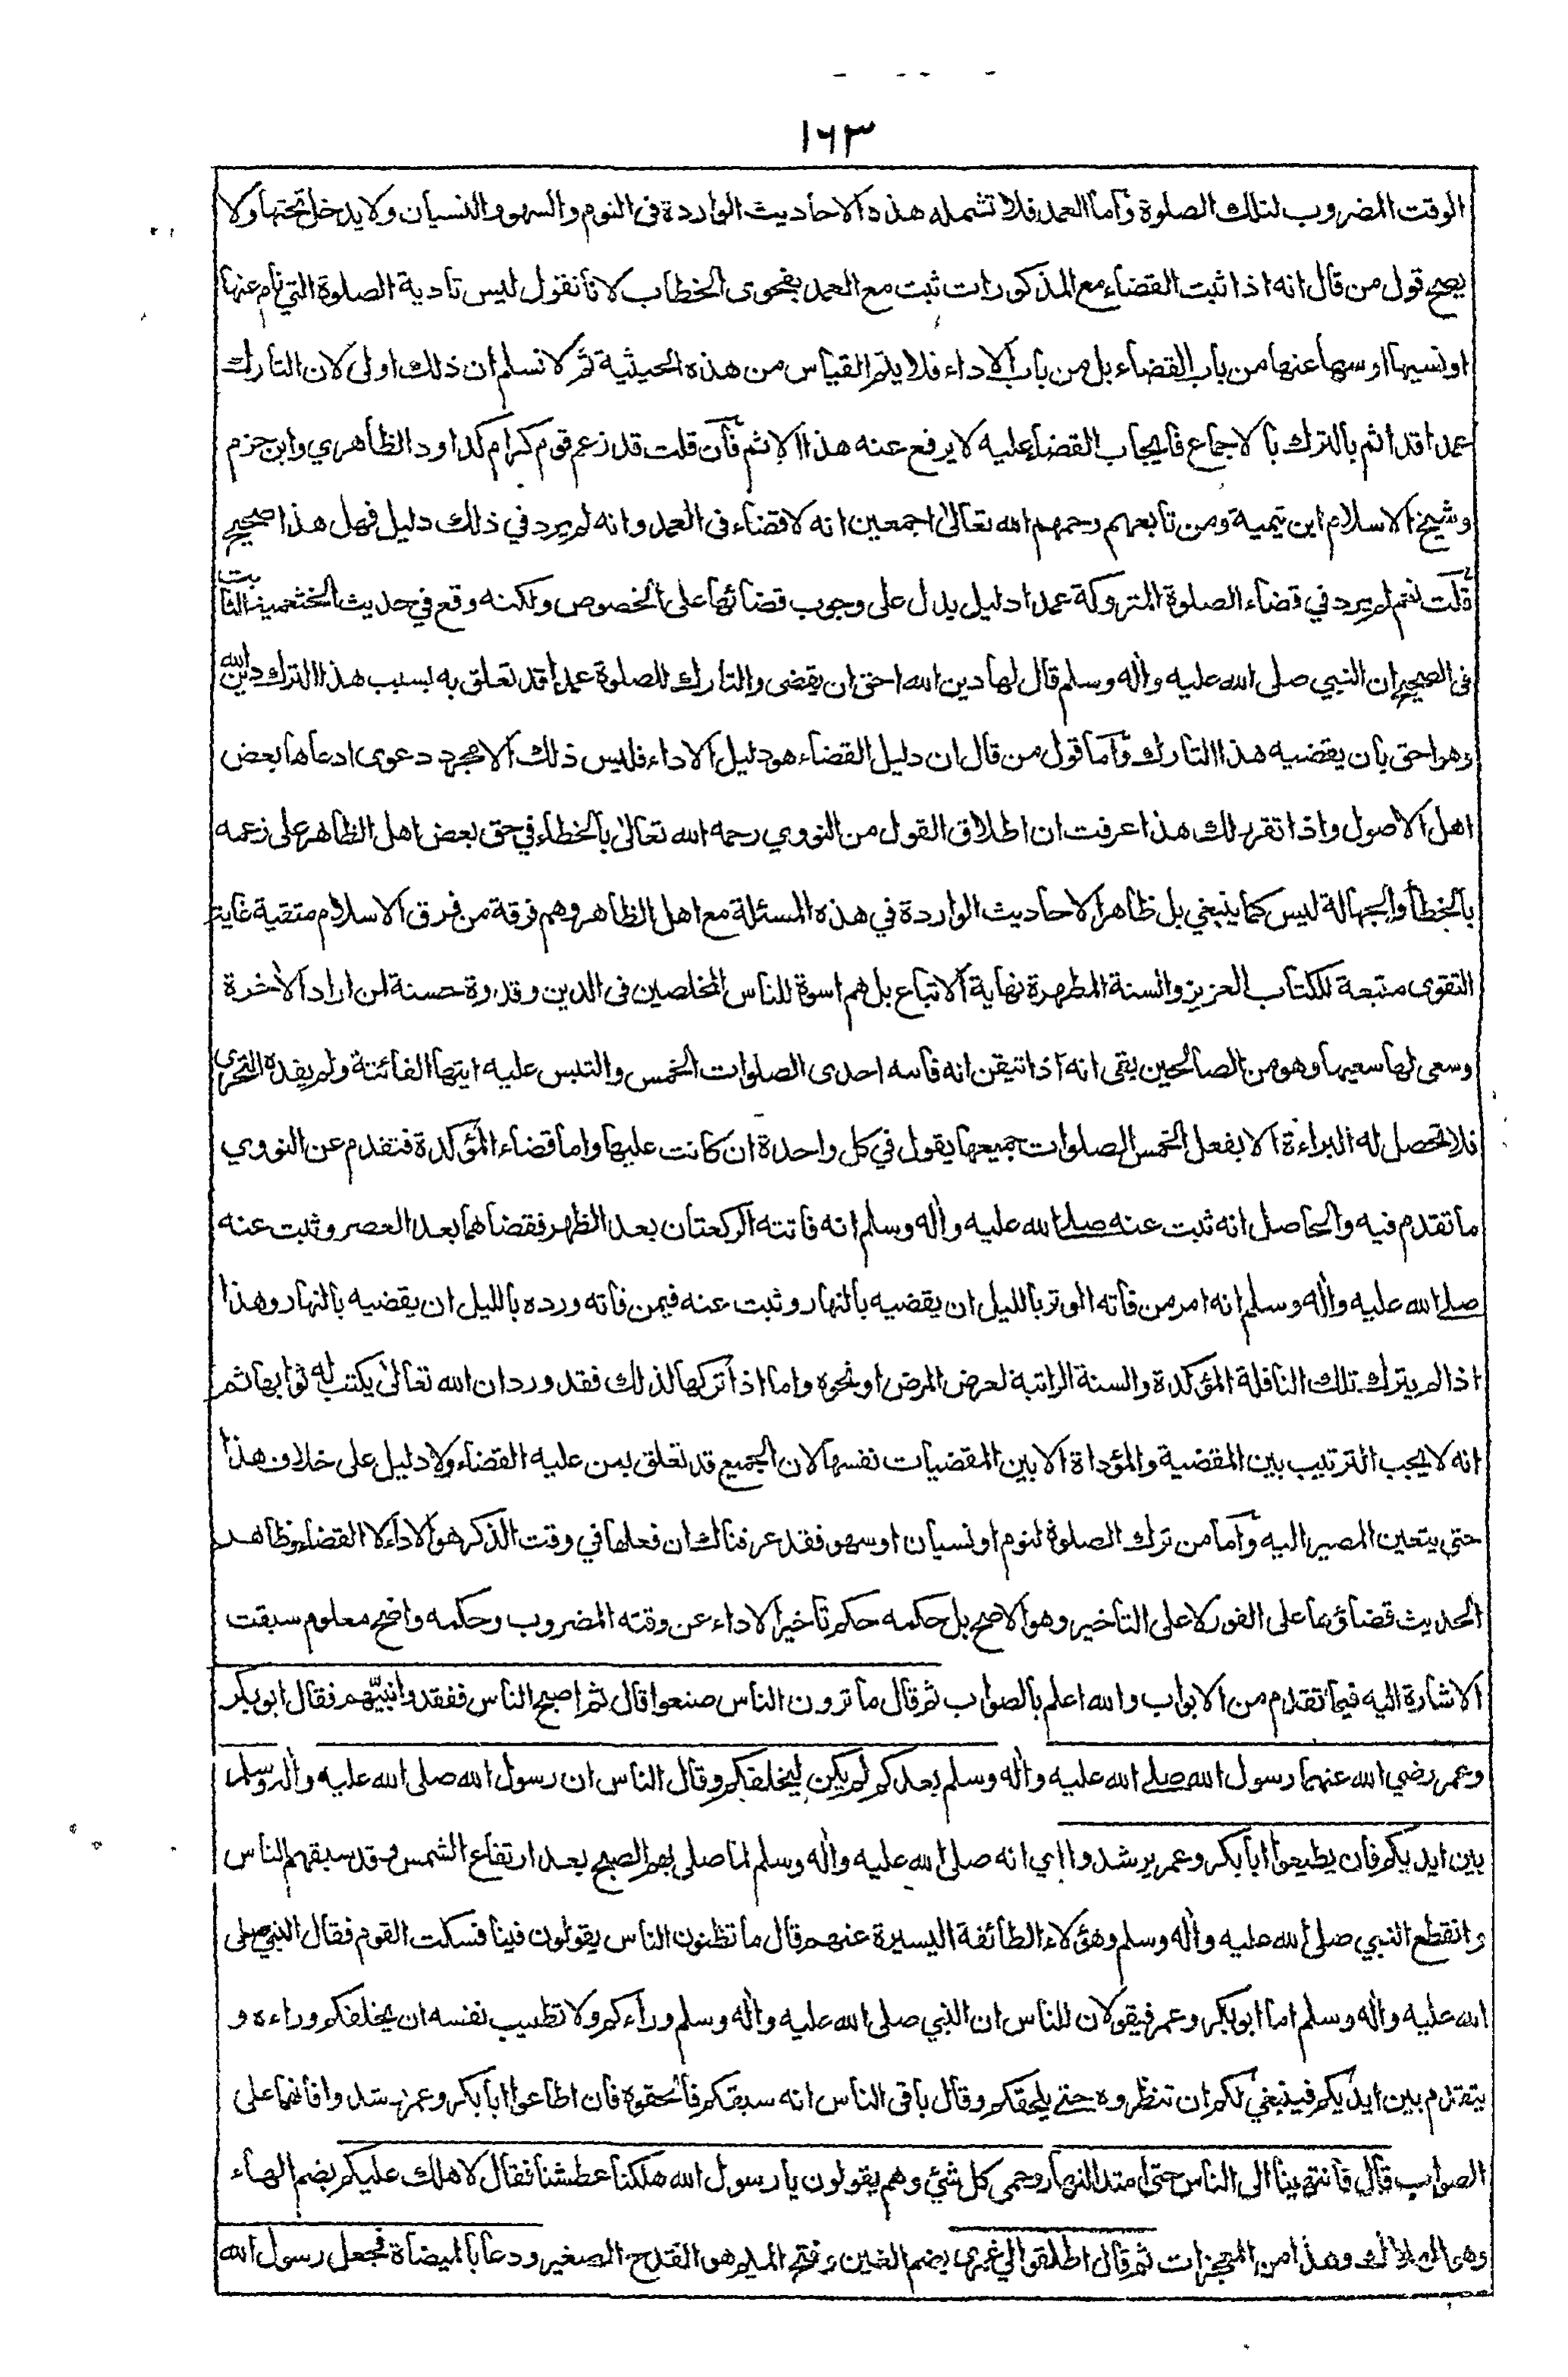 ١٦٣
الوقت المضروب لتلك الصلوة وأما العمد فلا تشمله هذه الاحاديث الواردة فى النوم والسهو والنسيان ولا يدخل تحتها ولا
يصح قول من قال انه اذا ثبت القضاء مع المذكورات ثبت مع العمد بفحوى الخطاب لانا نقول ليس تادية الصلوة التي نام عنها
او نسيها او سها عنها من باب القضاء بل من باب الاداء فلا يتم القياس من هذه الحيثية ثم لا نسلم ان ذلك اولى لان التارك
عمدا قد اثم بالترك بالاجماع فايجاب القضاء عليه لا يرفع عنه هذا الاثم فأن قلت قد زعم قوم كرام كداود الظاهري وابن حزم
وشيخ الاسلام ابن تيمية ومن تابعهم رحمهم الله تعالى اجمعين انه لا قضاء فى العمد وانه لم يرد في ذلك دليل فهل هذا صحيح
قلت نعم لم يرد في قضاء الصلوة المتروكة عمدا دليل يدل على وجوب قضائها على الخصوص ولكنه وقع في حديث الخثعمية الثابت
فى الصحيح ان النبي صلى الله عليه وأله وسلم قال لها دين الله احق ان يقضى والتارك للصلوة عمدا قد تعلق به بسبب هذا الترك دين الله
وهو احق بان يقضيه هذا التارك وأما قول من قال ان دليل القضاء هو دليل الاداء فليس ذلك الا مجرد دعوى ادعاها بعض
اهل الاصول واذا تقرر لك هذا عرفت ان اطلاق القول من النووي رحمه الله تعالى بالخطاء في حق بعض اهل الظاهر على زعمه
بالخطأ والجهالة ليس كما ينبغي بل ظاهر الاحاديث الواردة في هذه المسئلة مع اهل الظاهر وهم فرقة من فرق الاسلام متقية غاية
التقوى متبعة للكتاب العزيز والسنة المطهرة نهاية الاتباع بل هم اسوة للناس المخلصين فى الدين وقدوة حسنة لمن اراد الأخرة
وسعى لها سعيها وهو من الصالحين بقى انه اذا تيقن انه فاته احدى الصلوات الخمس والتبس عليه ايتها الفائتة ولم يفده التحرى
فلا تحصل له البراءة الا بفعل الخمس الصلوات جميعها يقول في كل واحدة ان كانت عليها واما قضاء المؤكدة فتقدم عن النووي
ما تقدم فيه والحاصل انه ثبت عنه صلى الله عليه وأله وسلم انه فاتته الركعتان بعد الظهر فقضاهما بعد العصر وثبت عنه
صلى الله عليه وأله وسلم انه امر من فاته الوتر بالليل ان يقضيه بالنهار وثبت عنه فيمن فاته ورده بالليل ان يقضيه بالنهار وهذا
اذا لم يترك تلك النافلة المؤكدة والسنة الراتبة لعرض المرض او نحوه واما اذا تركها لذلك فقد ورد ان الله تعالى يكتب له ثوابها ثم
انه لا يجب الترتيب بين المقضية والمؤداة الا بين المقضيات نفسها لان الجميع قد تعلق بمن عليه القضاء ولا دليل على خلاف هذا
حتى يتعين المصير اليه وأما من ترك الصلوة لنوم او نسيان او سهو فقد عرفناك ان فعلها في وقت الذكر هو الاداء لا القضاء وظاهر
الحديث قضاؤها على الفور لا على التاخير وهو الاصح بل حكمه حكم تأخير الاداء عن وقته المضروب وحكمه واضح معلوم سبقت
الاشارة اليه فيما تقدم من الابواب والله اعلم بالصواب ثم قال ما ترون الناس صنعوا قال ثم اصبح الناس ففقدوا نبيهم فقال ابو بكر
وعمر رضي الله عنهما رسول الله صلى الله عليه وأله وسلم بعدكم لم يكن ليخلفكم وقال الناس ان رسول الله صلى الله عليه وأله وسلم
بين ايديكم فان يطيعوا ابا بكر وعمر يرشدوا اي انه صلى الله عليه وأله وسلم لما صلى بهم الصبح بعد ارتفاع الشمس وقد سبقهم الناس
وانقطع النبي صلى الله عليه وأله وسلم وهؤلاء الطائفة اليسيرة عنهم قال ما تظنون الناس يقولون فينا فسكت القوم فقال النبي صلى
الله عليه وأله وسلم اما ابو بكر وعمر فيقولان للناس ان النبي صلى الله عليه وأله وسلم ورآءكم ولا تطيب نفسه ان يخلفكم وراءه و
يتقدم بين ايديكم فينبغي لكم ان تنظروه حتى يلحقكم وقال باقى الناس انه سبقكم فالحقوه فان اطاعوا ابا بكر وعمر رشدوا فانهما على
الصواب قال فانتهينا الى الناس حتى امتد النهار وحمى كل شيء وهم يقولون يا رسول الله هلكنا عطشنا فقال لا هلك عليكم بضم الهاء
وهو الهلاك وهذا من المعجزات ثم قال اطلقوا لي غمرى بضم الغين وفتح الميم هو القدح الصغير ودعا بالميضاة فجعل رسول الله